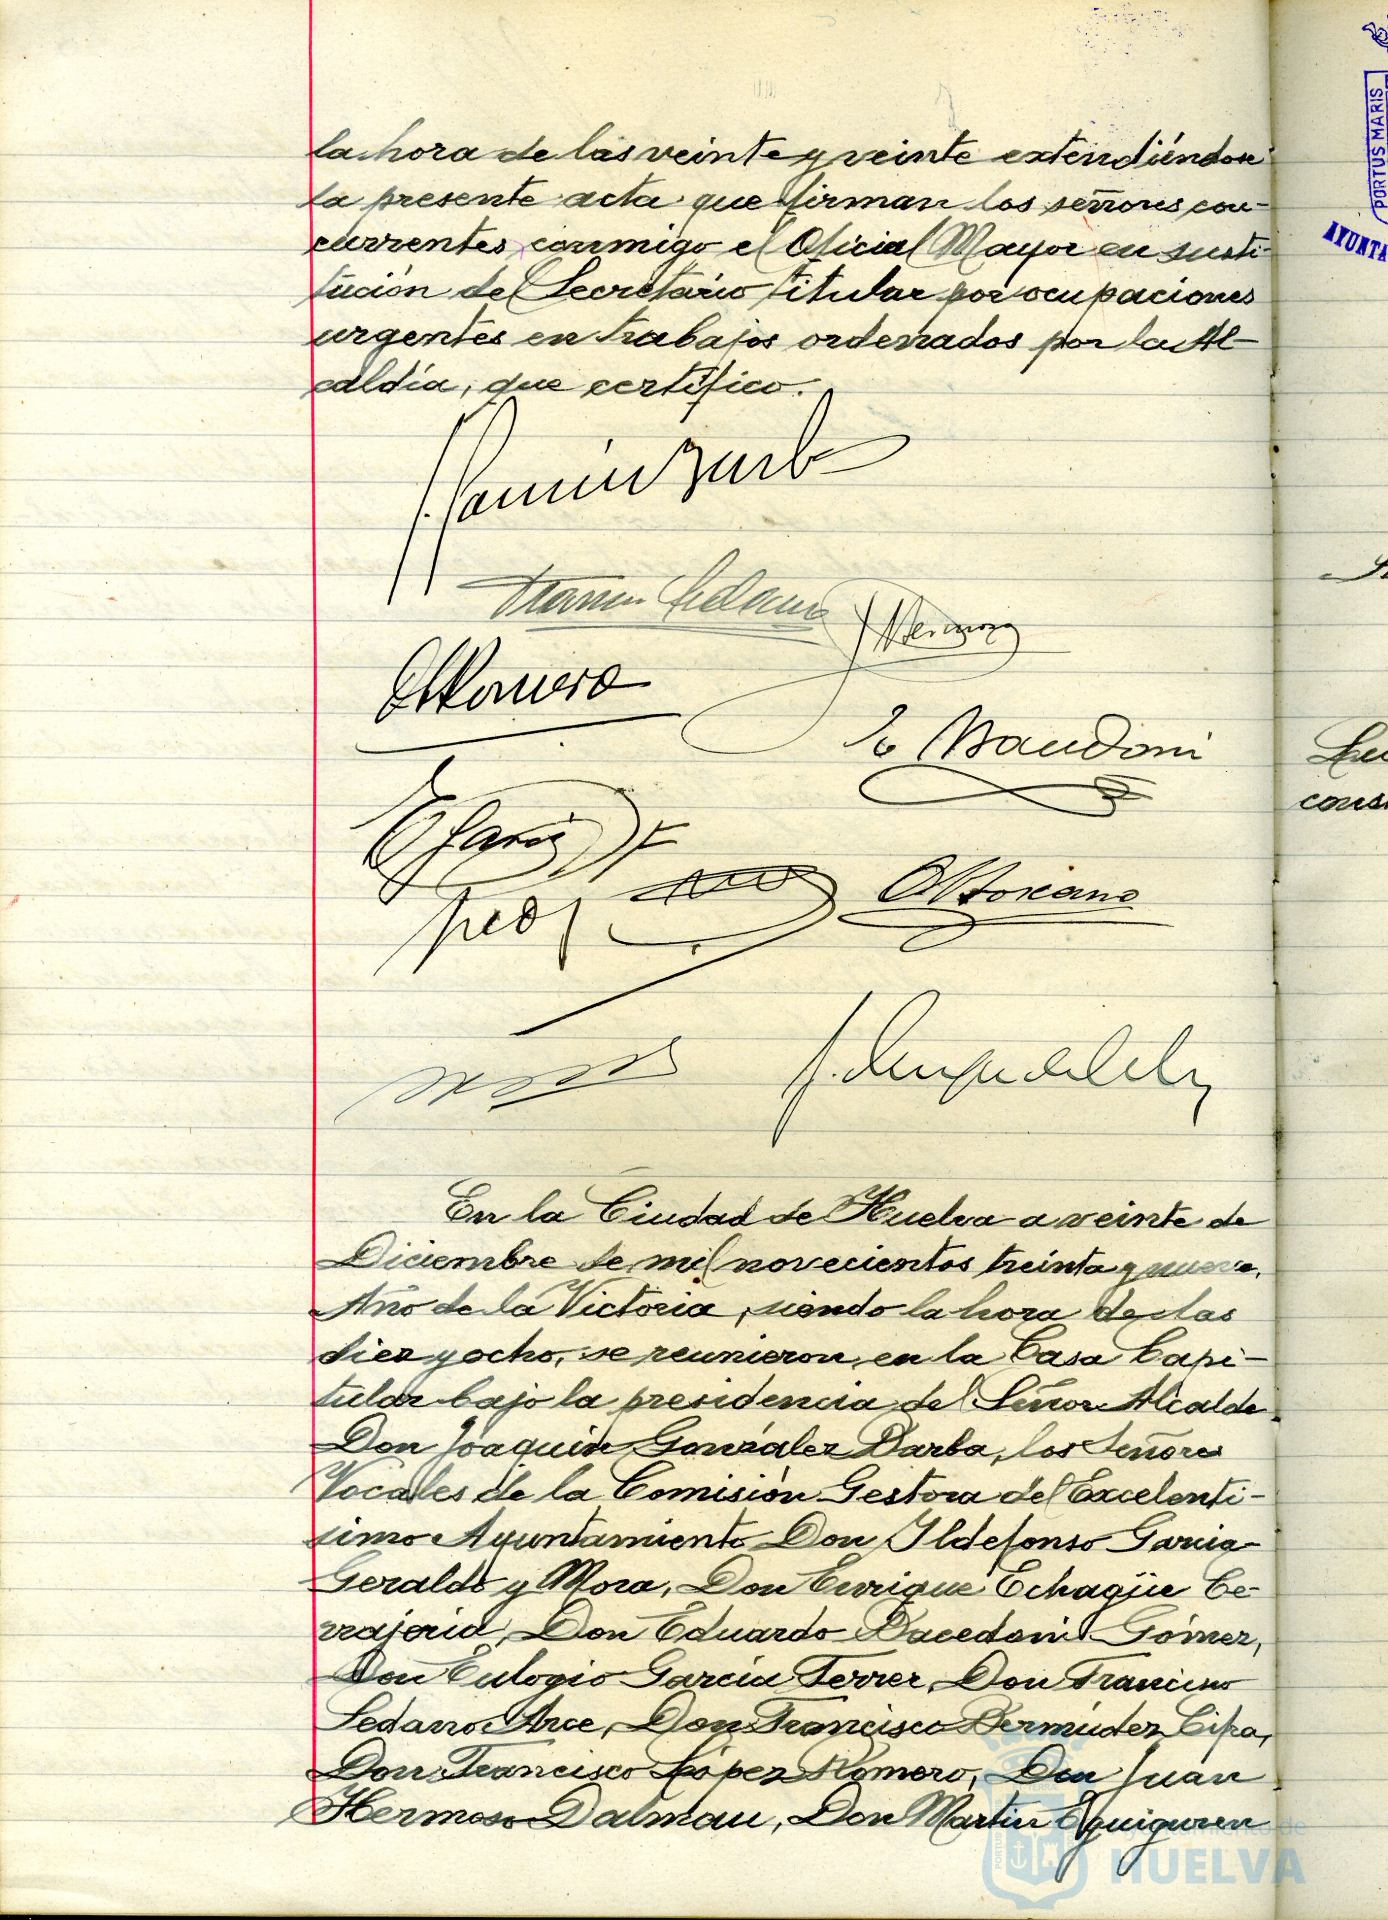 la hora de las veinte y veinte extendiéndose
la presente acta que firman los señores con-
currentes conmigo el Oficial Mayor en susti-
tución del Secretario titular por ocupaciones
urgentes en trabajos ordenados por la Al-
caldía, que certifico.
En la Ciudad de Huelva a veinte de
Diciembre de mil novecientos treinta y nueve,
Año de la Victoria, siendo la hora de las
diez y ocho, se reunieron en la Casa Capi-
tular bajo la presidencia del Señor Alcalde
Don Joaquin González Barba, los Señores
Vocales de la Comisión Gestora del Excelenti-
simo Ayuntamiento Don Ildefonso Garcia
Geraldo y Mora, Don Enrique Echagüe Ce-
rrajeria, Don Eduardo Gómez,
Don Eulogio García Ferrer, Don Francisco
Sedano Arce, Don Francisco Bermúdez Cifra,
Don Francisco López Romero, Don Juan
Hermoso Dalmau, Don Martin Eguiguren
PORTUS MARIS
Ayuntamiento de
HUELVA